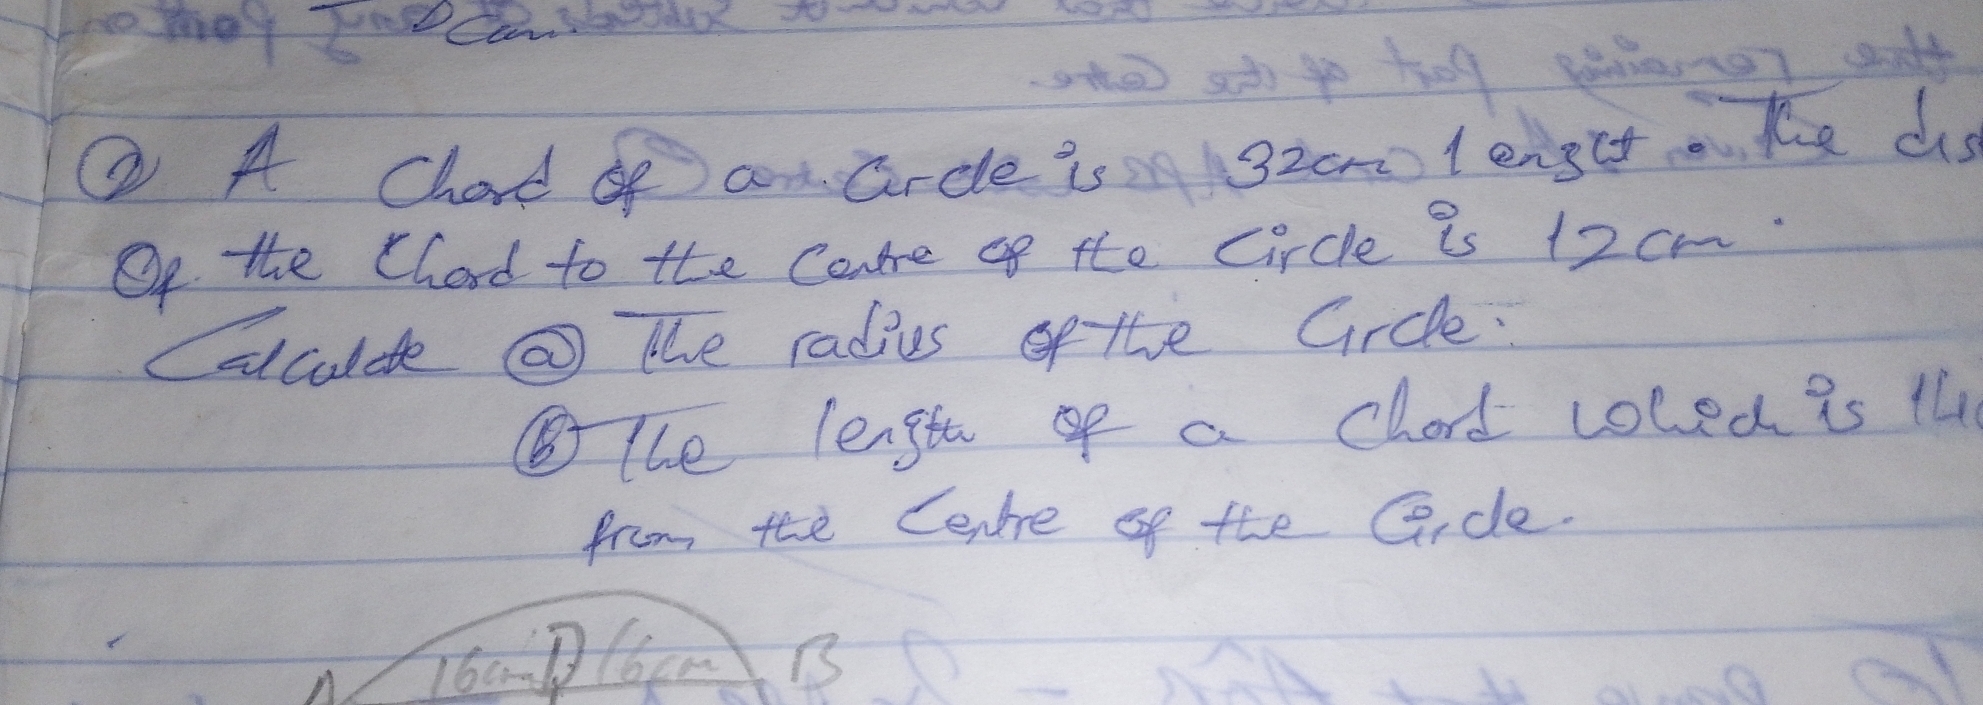 Can.
② A Chord of a Circle is 32cm lenght. The dis
Of the Chord to the Centre of the Circle is 12cm.
Calculate ⓐ The radius of the Circle:
ⓑ The length of a Chord which is
from the Centre of the Circle.
16cm D 16cm B
A